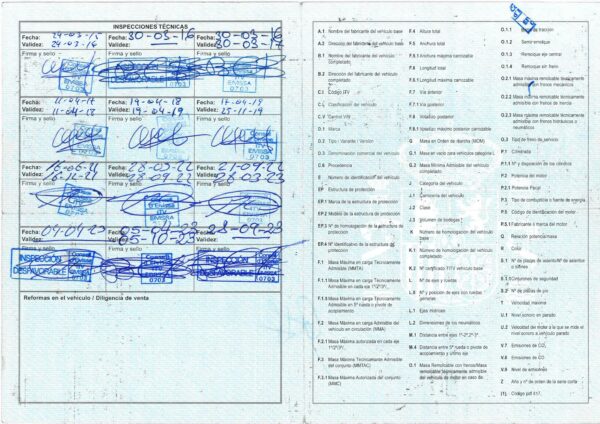 INSPECCIONES TÉCNICAS
Fecha: 29-03-16 Fecha: 30-03-16 Fecha: 30-03-16
Validez: 29-03-16 Validez: Validez: 30-03-17
Firma y sello Firma y sello Firma y sello
ENMISA
0703
Fecha: 11-04-17 Fecha: 19-04-18 Fecha: 17-04-19
Validez: 11-04-18 Validez: 19-04-19 Validez: 25-11-19
Firma y sello Firma y sello Firma y sello
0703
Fecha: Fecha: 28-03-22 Fecha: 21-04-22
Validez: 16-11-21 Validez: 28-09-22 Validez: 28-03-23
Firma y sello Firma y sello Firma y sello
ITV
0703
Fecha: 04-04-23 Fecha: 05-04-23 Fecha: 28-09-23
Validez: Validez: 05-10-23 Validez:
Firma y sello Firma y sello Firma y sello
INSPECCIÓN
DESFAVORABLE
0703
INSPECCIÓN
DESFAVORABLE
0703
Reformas en el vehículo / Diligencia de venta
A.1 Nombre del fabricante del vehículo base
A.2 Dirección del fabricante del vehículo base
B.1 Nombre del fabricante del vehículo
completado
B.2 Dirección del fabricante del vehículo
completado
C.I Código ITV
C.L Clasificación del vehículo
C.V Control VIN
D.1 Marca
D.2 Tipo / Variante / Versión
D.3 Denominación comercial del vehículo
D.6 Procedencia
E Número de identificación del vehículo
EP Estructura de protección
EP.1 Marca de la estructura de protección
EP.2 Modelo de la estructura de protección
EP.3 Nº de homologación de la estructura
de protección
EP.4 Nº identificativo de la estructura de
protección
F.1 Masa Máxima en carga Técnicamente
Admisible (MMTA)
F.1.1 Masa Máxima en carga Técnicamente
Admisible en cada eje 1º/2º/3º/..
F.1.5 Masa Máxima en carga Técnicamente
Admisible en 5ª rueda o pivote de
acoplamiento
F.2 Masa Máxima en carga Admisible del
vehículo en circulación (MMA)
F.2.1 Masa Máxima autorizada en cada eje
1º/2º/3º/..
F.3 Masa Máxima Técnicamente Admisible
del conjunto (MMTAC)
F.3.1 Masa Máxima Autorizada del conjunto
(MMC)
F.4 Altura total
F.5 Anchura total
F.5.1 Anchura máxima carrozable
F.6 Longitud total
F.6.1 Longitud máxima carrozable
F.7 Vía anterior
F.7.1 Vía posterior
F.8 Voladizo posterior
F.8.1 Voladizo máximo posterior carrozable
G Masa en Orden de marcha (MOM)
G.1 Masa en vacío (para vehículos categoría)
G.2 Masa Mínima Admisible del vehículo
completado
J Categoría del vehículo
J.1 Carrocería del vehículo
J.2 Clase
J.3 Volumen de bodegas
K Número de homologación del vehículo
base
K.1 Número de homologación del vehículo
completado
K.2 Nº certificado TITV vehículo base
L Nº de ejes y ruedas
L.0 Nº y posición de ejes con ruedas
gemelas
L.1 Ejes motrices
L.2 Dimensiones de los neumáticos
M.1 Distancia entre ejes 1º-2º,2º-3º..
M.4 Distancia entre 5ª rueda o pivote de
acoplamiento y último eje
O.1 Masa Remolcable con frenos/Masa
remolcable técnicamente admisible
del vehículo de motor en caso de
O.1.1 Barra de tracción
O.1.2 Semi-remolque
O.1.3 Remolque eje central
O.1.4 Remolque sin freno
O.2.1 Masa máxima remolcable técnicamente
admisible con frenos mecánicos
O.2.2 Masa máxima remolcable técnicamente
admisible con frenos de inercia
O.2.3 Masa máxima remolcable técnicamente
admisible con frenos hidráulicos o
neumáticos
O.3 Tipo de freno de servicio
P.1 Cilindrada
P.1.1 Nº y disposición de los cilindros
P.2 Potencia del motor
P.2.1 Potencia Fiscal
P.3 Tipo de combustible o fuente de energía
P.5 Código de identificación del motor
P.5.1 Fabricante o marca del motor
Q Relación potencia/masa
R Color
S.1 Nº de plazas de asiento/Nº de asientos
o sillines
S.1.1 Cinturones de seguridad
S.2 Nº de plazas de pie
T Velocidad máxima
U.1 Nivel sonoro en parado
U.2 Velocidad del motor a la que se mide el
nivel sonoro a vehículo parado
V.7 Emisiones de CO₂
V.8 Emisiones de CO
V.9 Nivel de emisiones
Z Año y nº de orden de la serie corta
(1). Código pdf 417.